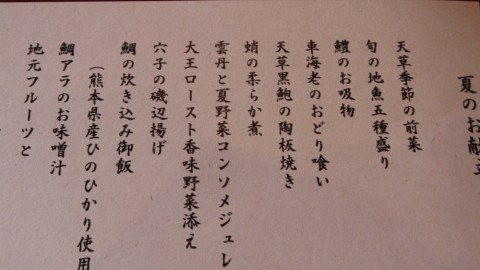 夏のお献立
天草季節の前菜
旬の地魚五種盛り
鱧のお吸物
車海老のおどり喰い
天草黒鮑の陶板焼き
蛸の柔らか煮
雲丹と夏野菜コンソメジュレ
大王ロースト香味野菜添え
穴子の磯辺揚げ
鯛の炊き込み御飯
(熊本県産ひのひかり使用
鯛アラのお味噌汁
地元フルーツと